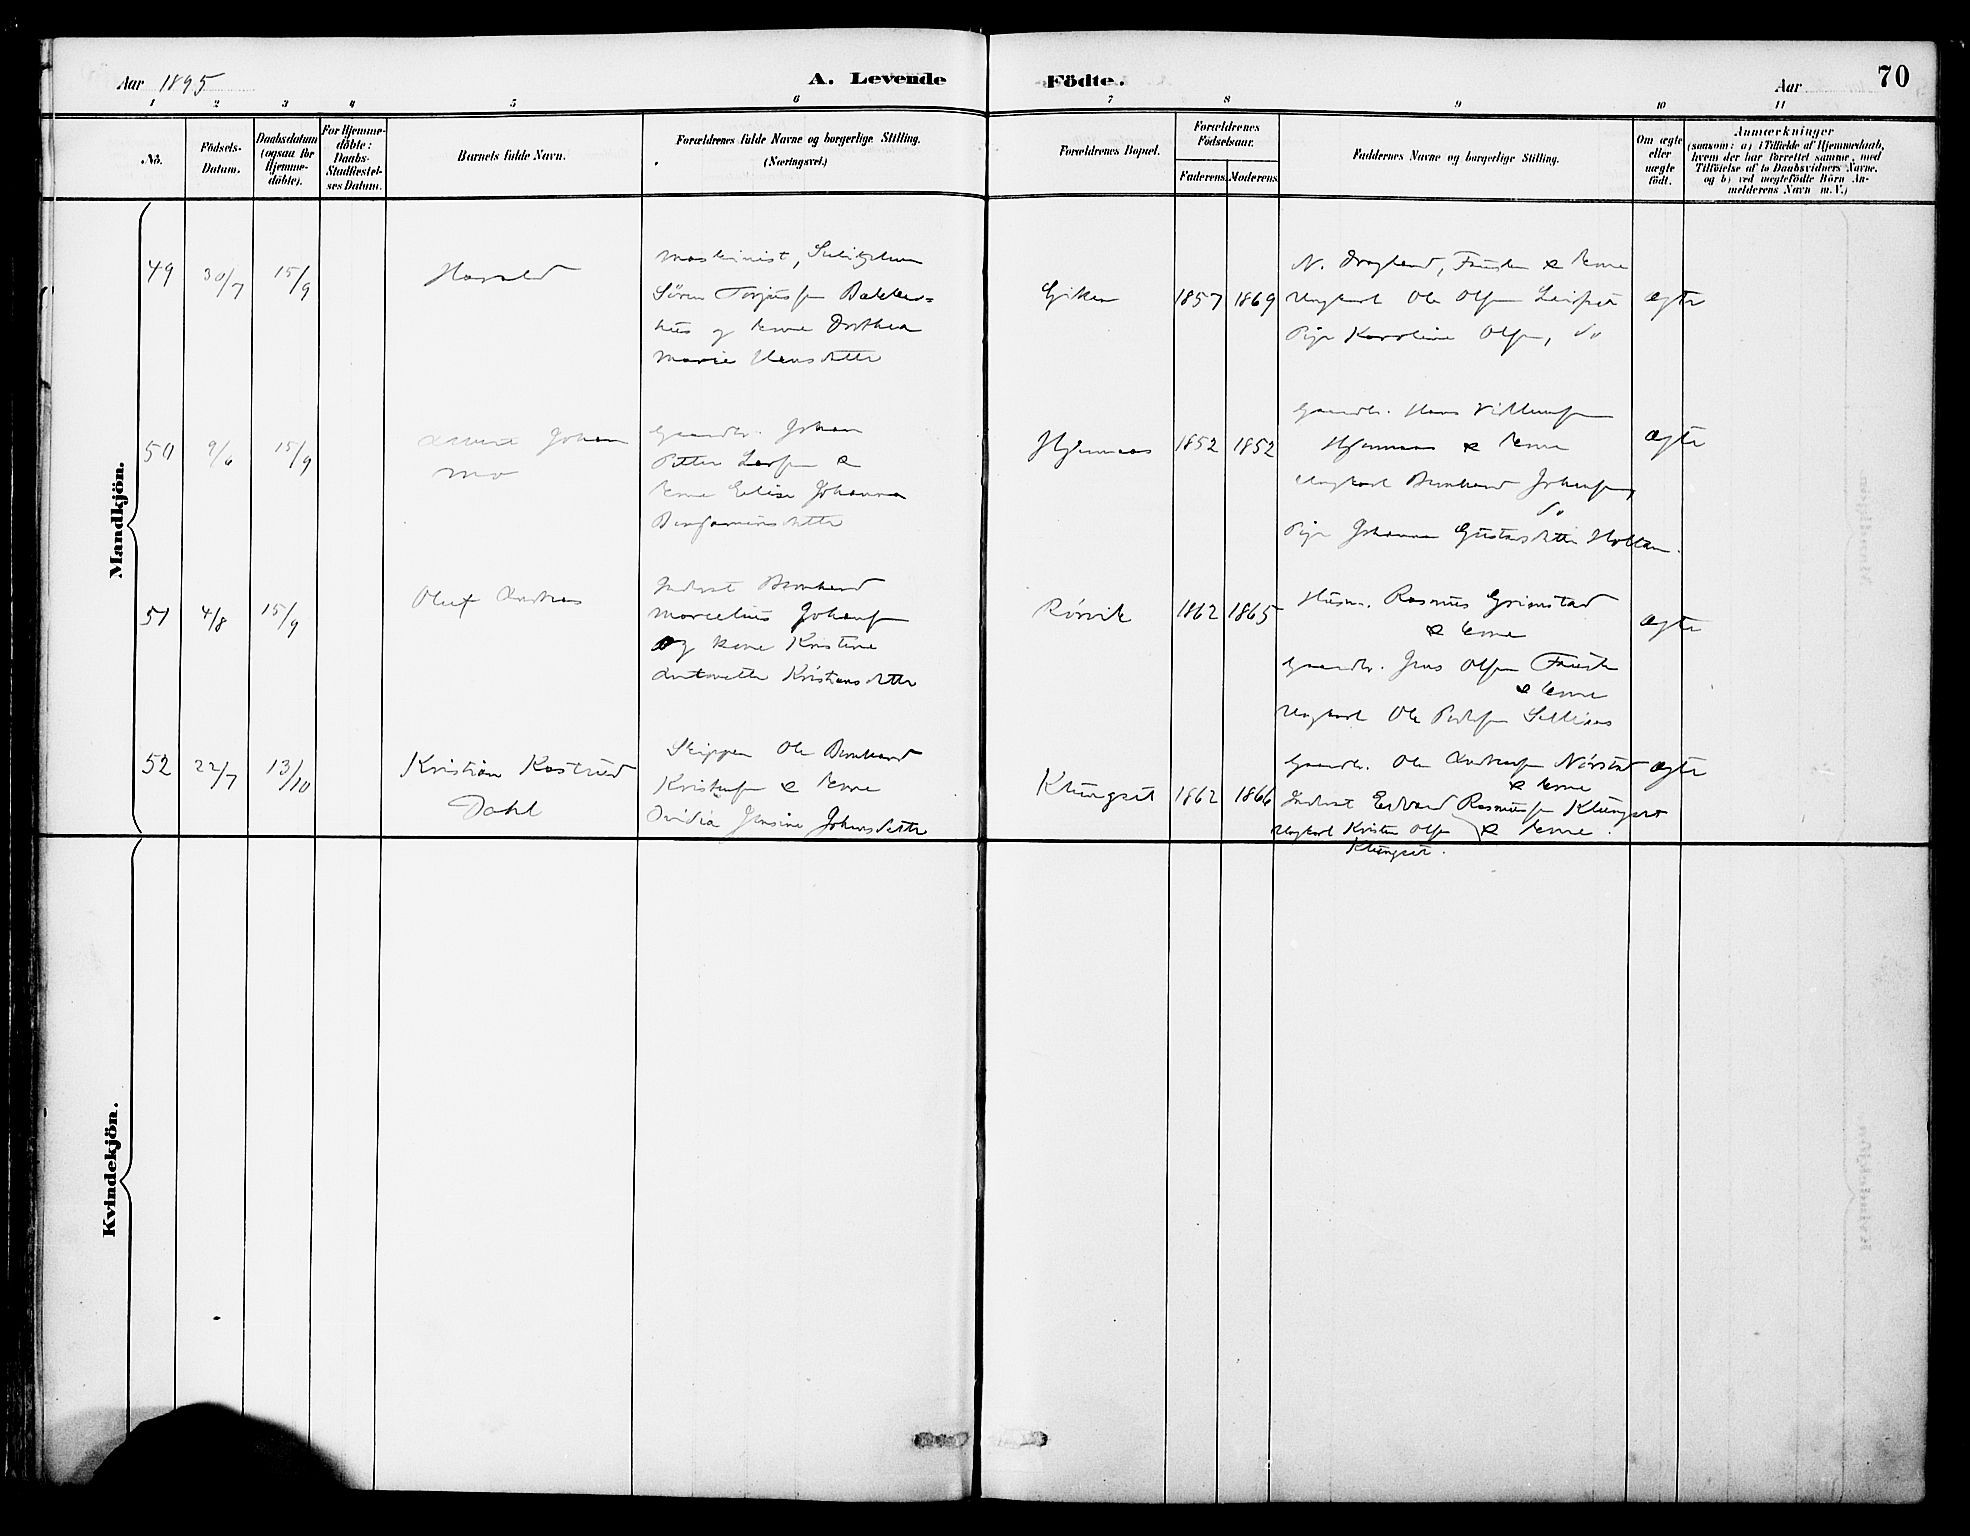 Aar 1895
A. Levende Födte.
Aar
70
1 2 3 4 5 6 7 8 9 10 11
No.
Födsels-
Datum.
Daabsdatum
(ogsaa for
Hjemme-
döbte).
For Hjemme-
döbte:
Daabs-
Stadfæstel-
ses Datum.
Barnets fulde Navn.
Forældrenes fulde Navne og borgerlige Stilling.
(Næringsvei.)
Forældrenes Bopæl.
Forældrenes
Födselsaar.
Faderens. Moderens.
Faddernes Navne og borgerlige Stilling.
Om ægte
eller
uægte
födt.
Anmærkninger
(saasom: a) i Tilfælde af Hjemmedaab,
hvem der har forrettet samme, med
Tilföielse af to Daabsvidners Navne,
og b) ved uægtefödte Börn An-
melderens Navn m. V.)
Mandkjön.
49 30/7 15/9 Harald
Maskinist,
Søren Torjussen Bakke-
hus og kone Dorthea
Marie Hansdatter
Giken 1857 1869
N. Dragland, Fauske & kone
Ungkarl Ole Olsen Leifset
Pige Karoline Olsen, do
ægte
50 9/6 15/9
Johan
Mo
Gaardbr. Johan
Petter Larsen &
kone Elise Johanna
Benjaminsdatter
Hjemaas 1852 1852
Gaardbr. Hans Villumsen
Hjemaas & kone
Ungkarl Bernhard Johansen,
do
Pige Johanna Gustavsdatter
ægte
51 4/8 15/9 Oluf Andreas
Inderst Bernhard
Marcelius Johansen
og kone Kristine
Antonette Kristiansdatter
Rørvik 1862 1865
Husm. Rasmus Grimstad
& kone
Gaardbr. Jens Olsen Fauske
& kone
Ungkarl Ole
ægte
52 22/7 13/10 Kristian Kastrud
Dahl
Skipper Ole Bernhard
Kristensen & kone
Ovidia Jensine Johnsdatter
Klungset 1862 1866
Gaardbr. Ole Andreasen Nørstad
& kone
Inderst Edvard Rasmussen Klungset
& kone.
Ungkarl Kristen Olsen
Klungset.
ægte
Kvindekjön.